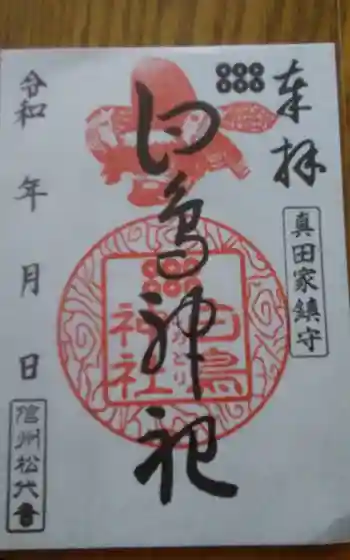 奉拝
真田家鎮守
白鳥神社
白鳥
しらとり
神社
令和 年 月 日
信州松代